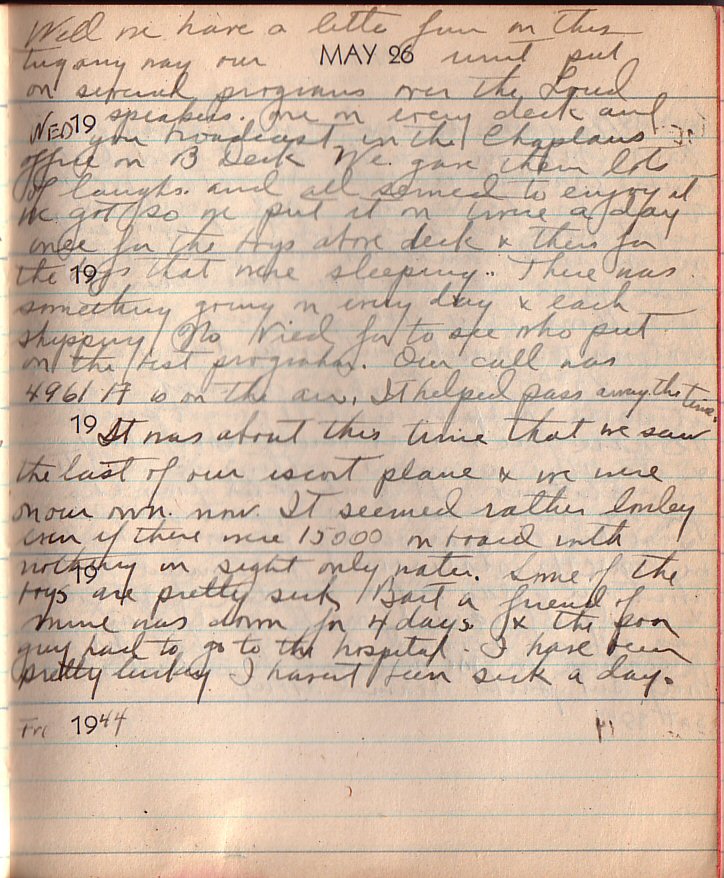 Well we have a little fun on this
tug any way our MAY 26 unit put
on several programs over the Loud
speakers. one on every deck and
WED 19 you broadcast in the Chaplans
office on B Deck We gave them lots
of laughs. and all semed to enjoy it
we got so we put it on twice a day
once for the boys above deck & then for
the 19 boys that were sleeping. There was
something going on every day & each
shipping No. vied for to see who put
on the best program. Our call was
4961 17 is on the air. It helped pass away the time.
19 It was about this time that we saw
the last of our escort plane & we were
on our own. now It seemed rather lonley
even if there were 15000 on board with
nothing in sight only water. Some of the
19 boys are pretty sick Bart a friend of
mine was down for 4 days. & the poor
guy had to go to the hospital. I have been
pretty luckey I havent been sick a day.
Fri 1944